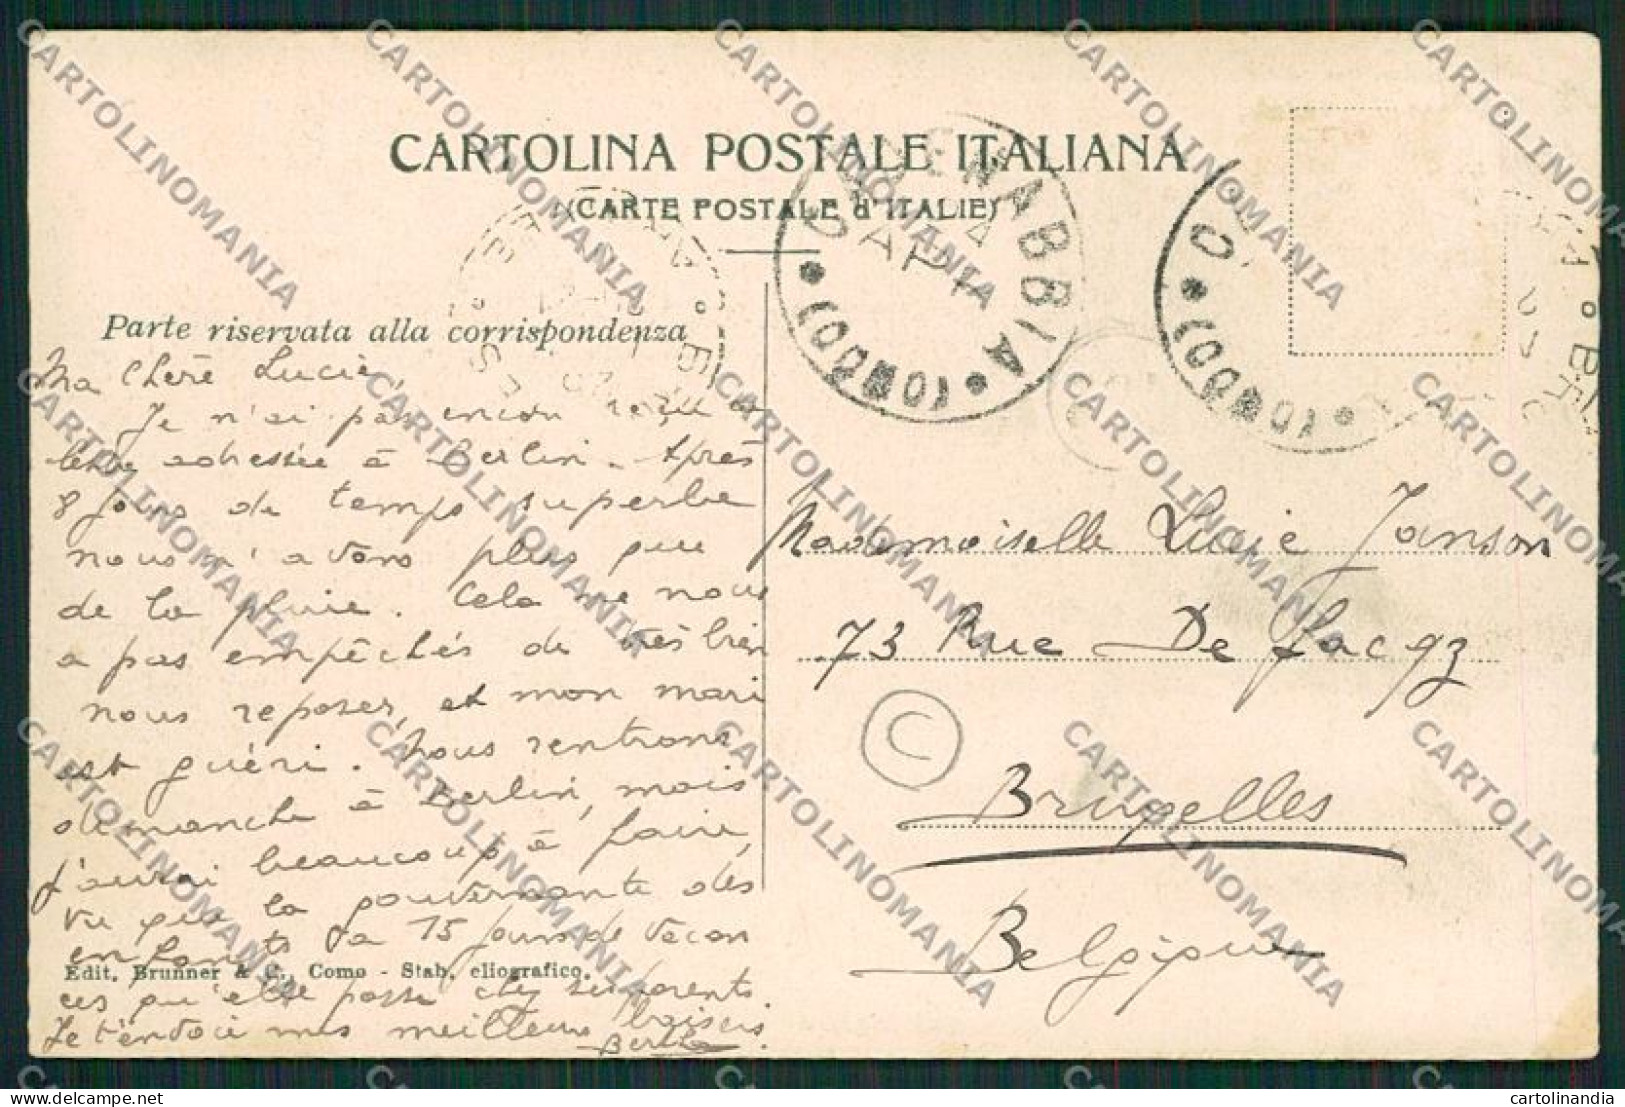 CARTOLINA POSTALE ITALIANA
(CARTE POSTALE d'ITALIE)
CADENABBIA
(COMO)
Parte riservata alla corrispondenza
Ma Chère Lucie,
Je n'ai pas encore reçu ta
lettre adressée à Berlin. Après
8 jours de temps superbe
nous n'avons plus que
de la pluie. Cela ne nous
a pas empêchés de très bien
nous reposer, et mon mari
est guéri. Nous rentrons
dimanche à Berlin, mais
j'aurai beaucoup à faire,
vu que la gouvernante des
enfants a 15 jours de vacan
Edit. Brunner & C., Como - Stab. eliografico.
ces qu'elle passe chez ses parents.
Je t'envoie mes meilleurs baisers.
Bertha
Mademoiselle Lucie Janson
73 Rue De Facqz
C
Bruxelles
Belgique
CARTOLINOMANIA
cartolinandia